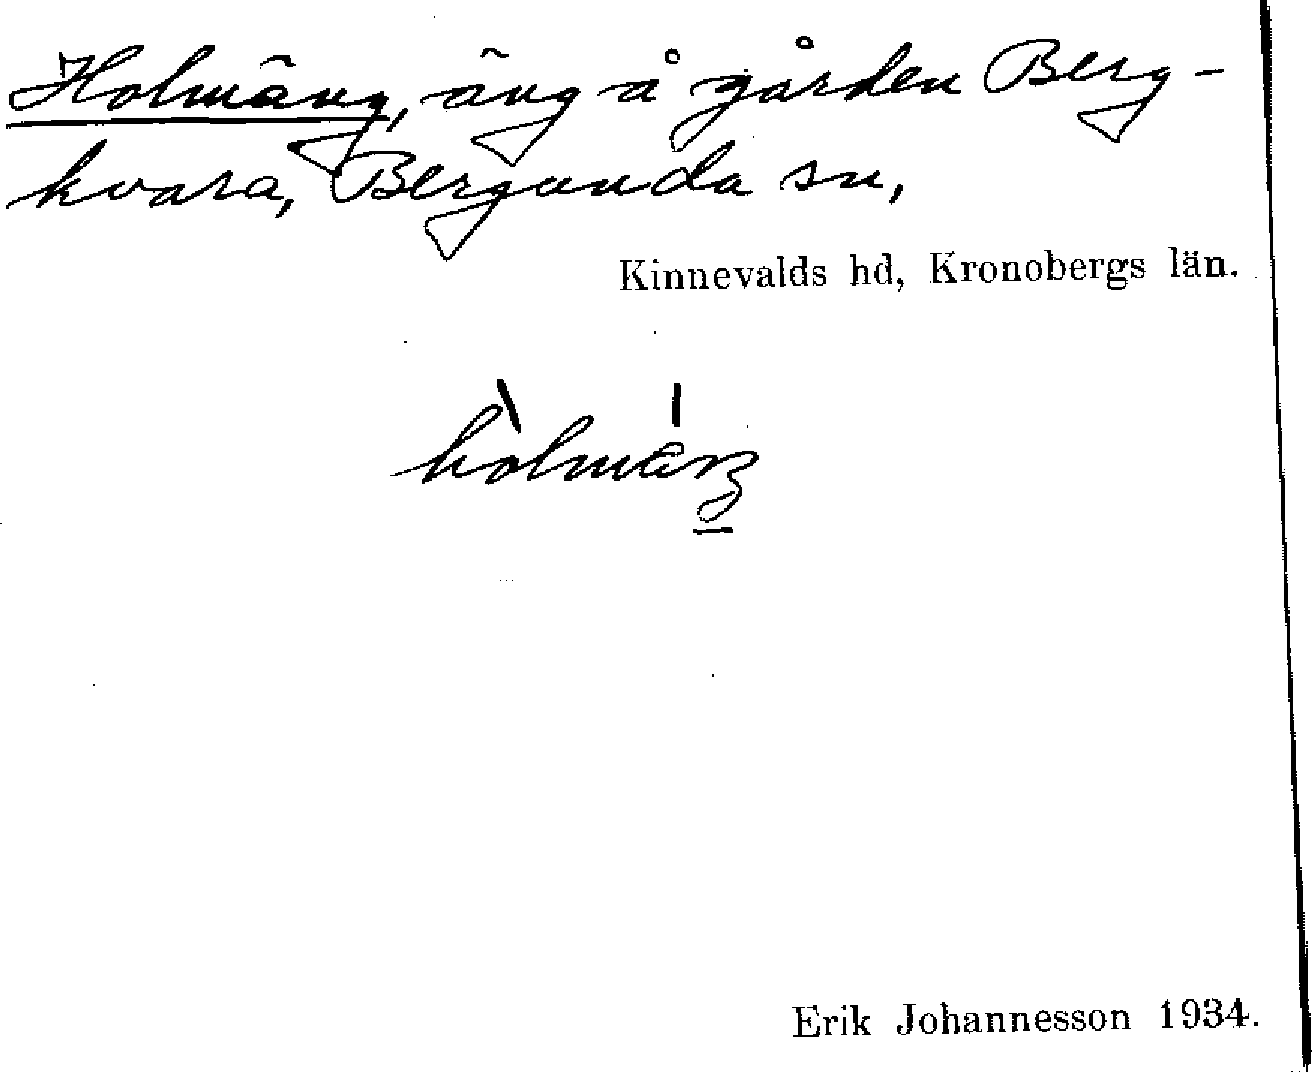 Holmäng, äng å gården Berg-
kvara, Bergunda sn,
Kinnevalds hd, Kronobergs län.
Erik Johannesson 1934.